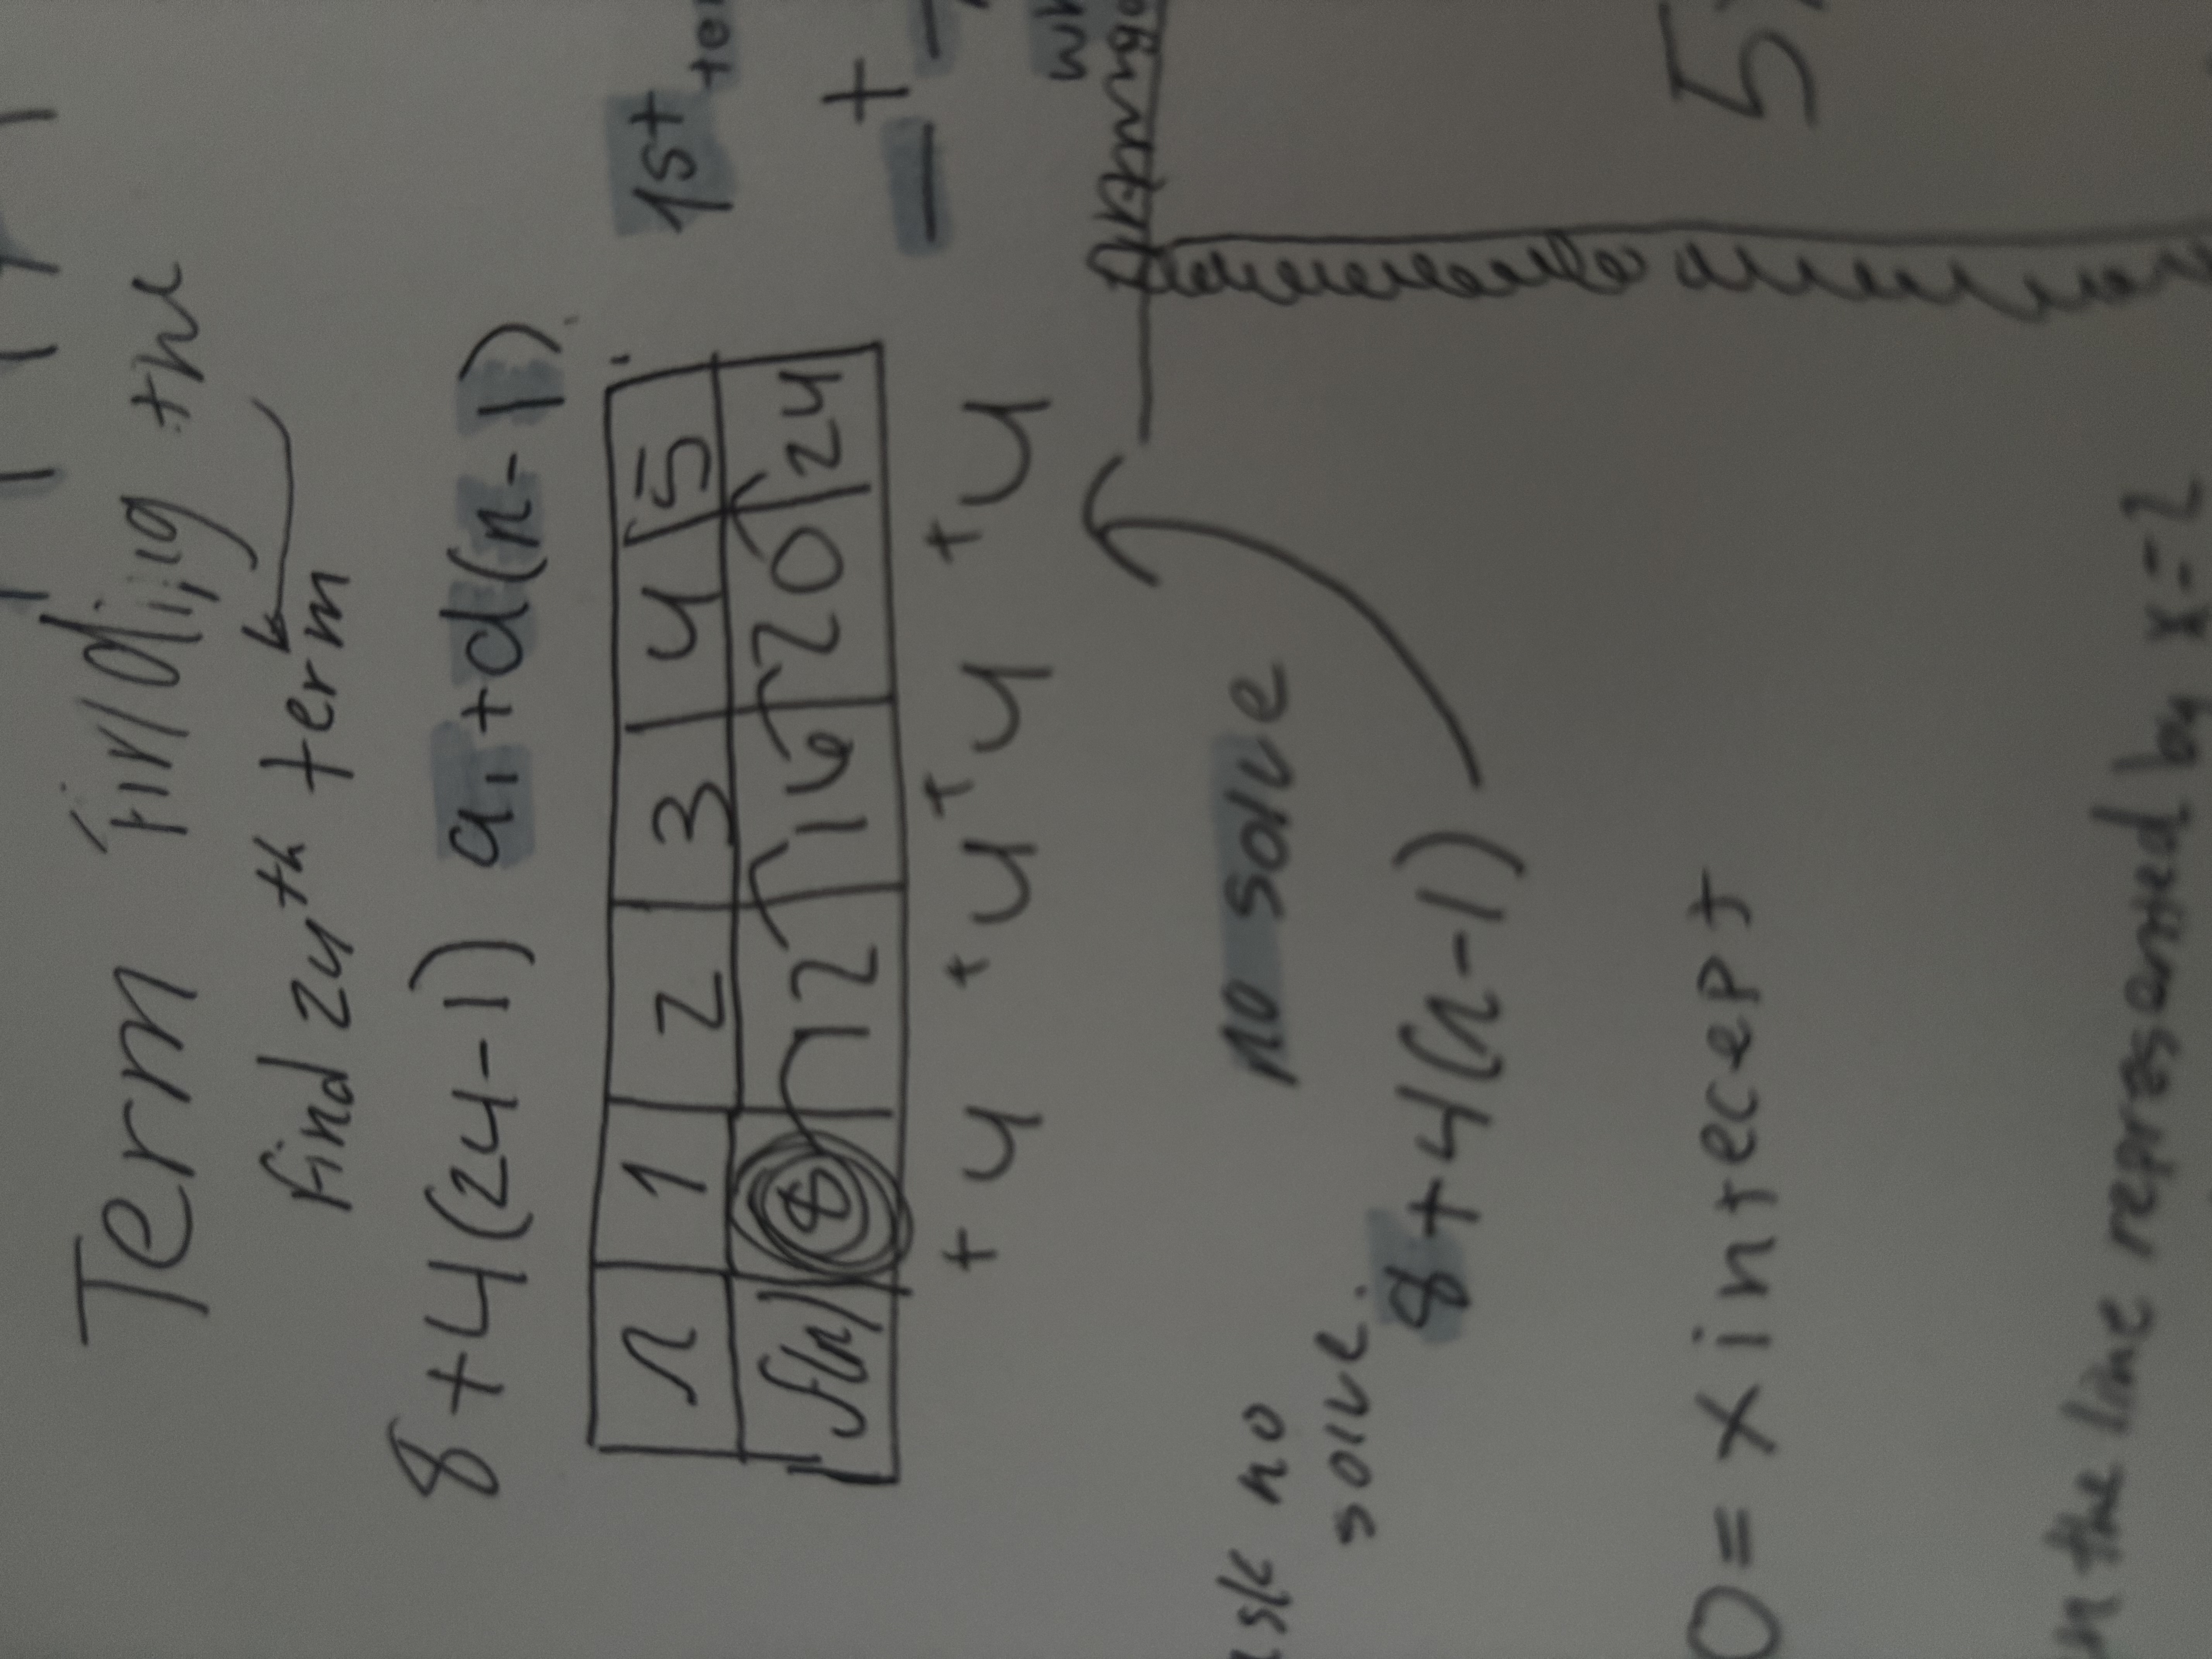 Term Finding the
find 24th term
8+4(24-1) a1+d(n-1)
1st
n 1 2 3 4 5
f(n) 8 12 16 20 24
+4 +4 +4 +4
no solve
no
solve.
8+4(n-1)
0 = x intercept
5
the line represented by x=2